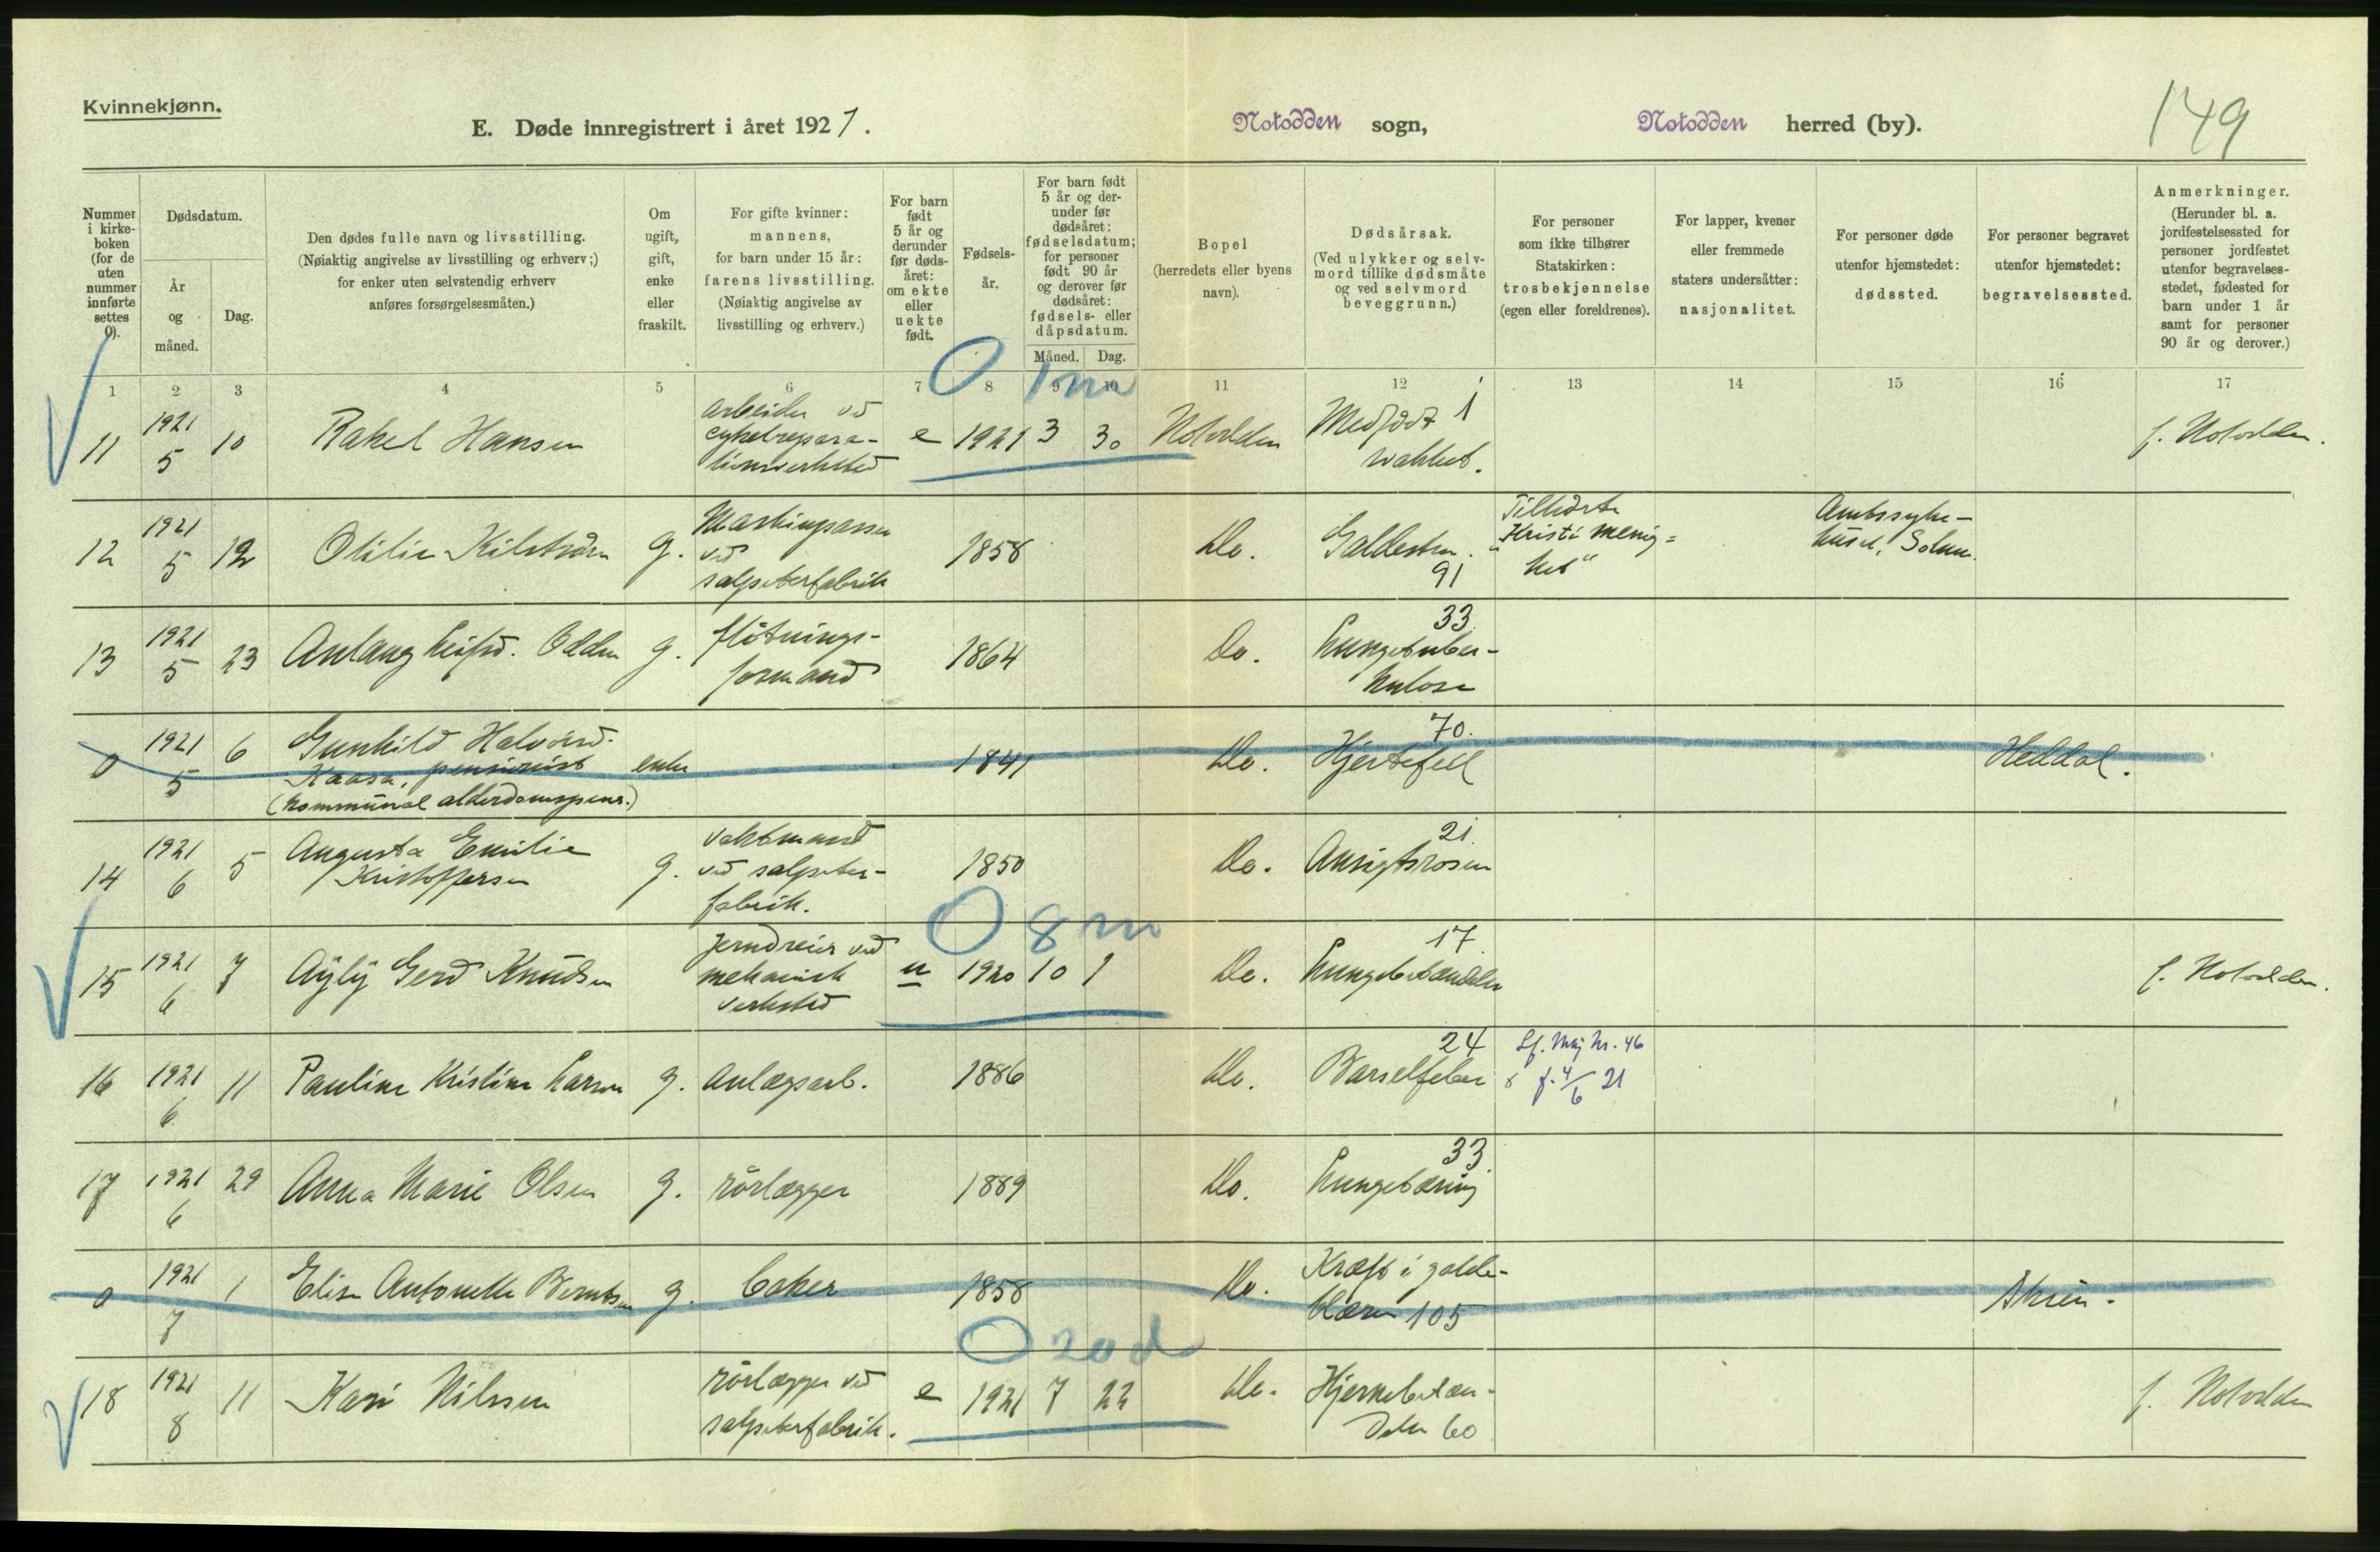 Kvinnekjønn.
E. Døde innregistrert i året 1921.
Notodden sogn, Notodden herred (by).
149
Nummer i kirke- boken (for de uten nummer innførte settes 0).
Dødsdatum.
År og måned.
Dag.
Den dødes fulle navn og livsstilling.
(Nøiaktig angivelse av livsstilling og erhverv;)
for enker uten selvstendig erhverv
anføres forsørgelsesmåten.)
Om ugift, gift, enke eller fraskilt.
For gifte kvinner: mannens,
for barn under 15 år: farens livsstilling.
(Nøiaktig angivelse av livsstilling og erhverv.)
For barn født 5 år og derunder før døds- året: om ekte eller uekte født.
Fødsels- år.
For barn født 5 år og der- under før dødsåret: fødselsdatum; for personer født 90 år og derover før dødsåret: fødsels- eller dåpsdatum.
Måned. Dag.
Bopel (herredets eller byens navn).
Dødsårsak.
(Ved ulykker og selv- mord tillike dødsmåte og ved selvmord beveggrunn.)
For personer som ikke tilhører Statskirken: trosbekjennelse (egen eller foreldrenes).
For lapper, kvener eller fremmede staters undersåtter: nasjonalitet.
For personer døde utenfor hjemstedet: dødssted.
For personer begravet utenfor hjemstedet: begravelsessted.
Anmerkninger.
(Herunder bl. a. jordfestelsessted for personer jordfestet utenfor begravelses- stedet, fødested for barn under 1 år samt for personer 90 år og derover.)
1 2 3 4 5 6 7 8 9 10 11 12 13 14 15 16 17
0 1 m
11 1921 5 10 Rakel Hansen arbeider ved cykelrepara- tionsverksted e 1921 3 30 Notodden Medfødt 1 svakhet. f. Notodden.
12 1921 5 12 Otilie Kilstrøm g. Maskinpasser ved salpeterfabrik 1858 Do. Galdesten. 91 Tilhørte "Kristi menig= het" Amtssyke- huset,
13 1921 5 23 Aslaug Leifsd. Odden g. fløtnings- formand 1864 Do. 33 Lungetuber- kulose
0 1921 5 6 Gunhild Halvorsd. Kaasa, pensionist (kommunal alderdomspens.) enke 1841 Do. 70. Hjertefeil Heddal.
14 1921 6 5 Augusta Emilie Kristoffersen g. vaktmand ved salpeter- fabrik. 1850 Do. 21. Ansigtsrosen
0 8 m
15 1921 6 7 Gerd Knudsen jerndreier ved mekanisk verksted u 1920 10 1 Do. 17. Lungebetændelse f. Notodden.
16 1921 6 11 Pauline Kristine Larsen g. anlægsarb. 1886 Do. 24 Barselfeber Nr. 46 f. 4/6 21
17 1921 6 29 Anna Marie Olsen g. rörlægger 1889 Do. 33. Lungetæring
0 1921 7 1 Elise Antonette Berntsen g. baker 1858 Do. Kræft i galde- blæren 105 Skien.
0 20 d
18 1921 8 11 Kari Nilssen rörlægger ved salpeterfabrik. e 1921 7 22 Do. Hjernebetæn- delse 60 f. Notodden